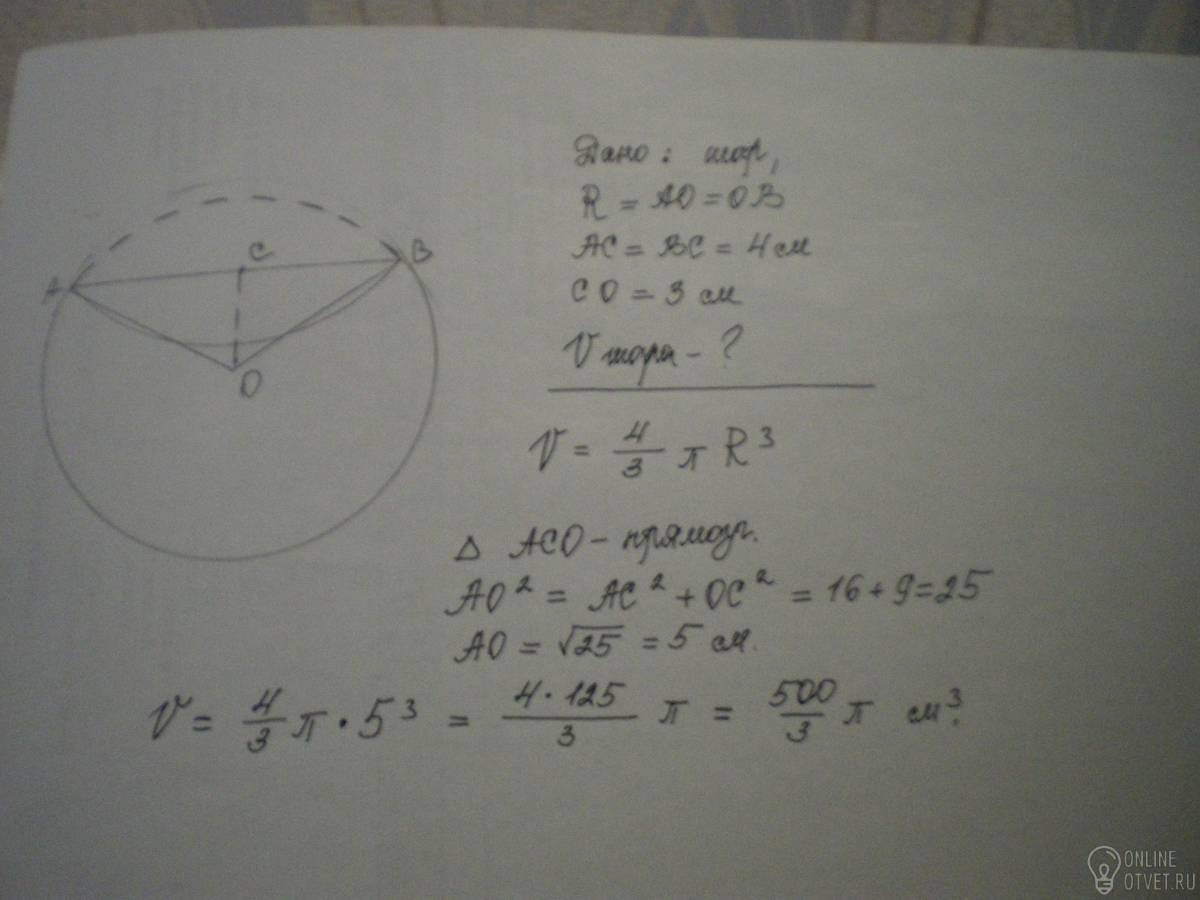 Дано: шар,
R = AO = OB
AC = BC = 4 см
CO = 3 см
V шара - ?
V = 4/3 π R³
Δ ACO - прямоуг.
AO² = AC² + OC² = 16 + 9 = 25
AO = √25 = 5 см.
V = 4/3 π · 5³ = 4 · 125/3 π = 500/3 π см³.
A
C
B
O
ONLINE
OTVET.RU